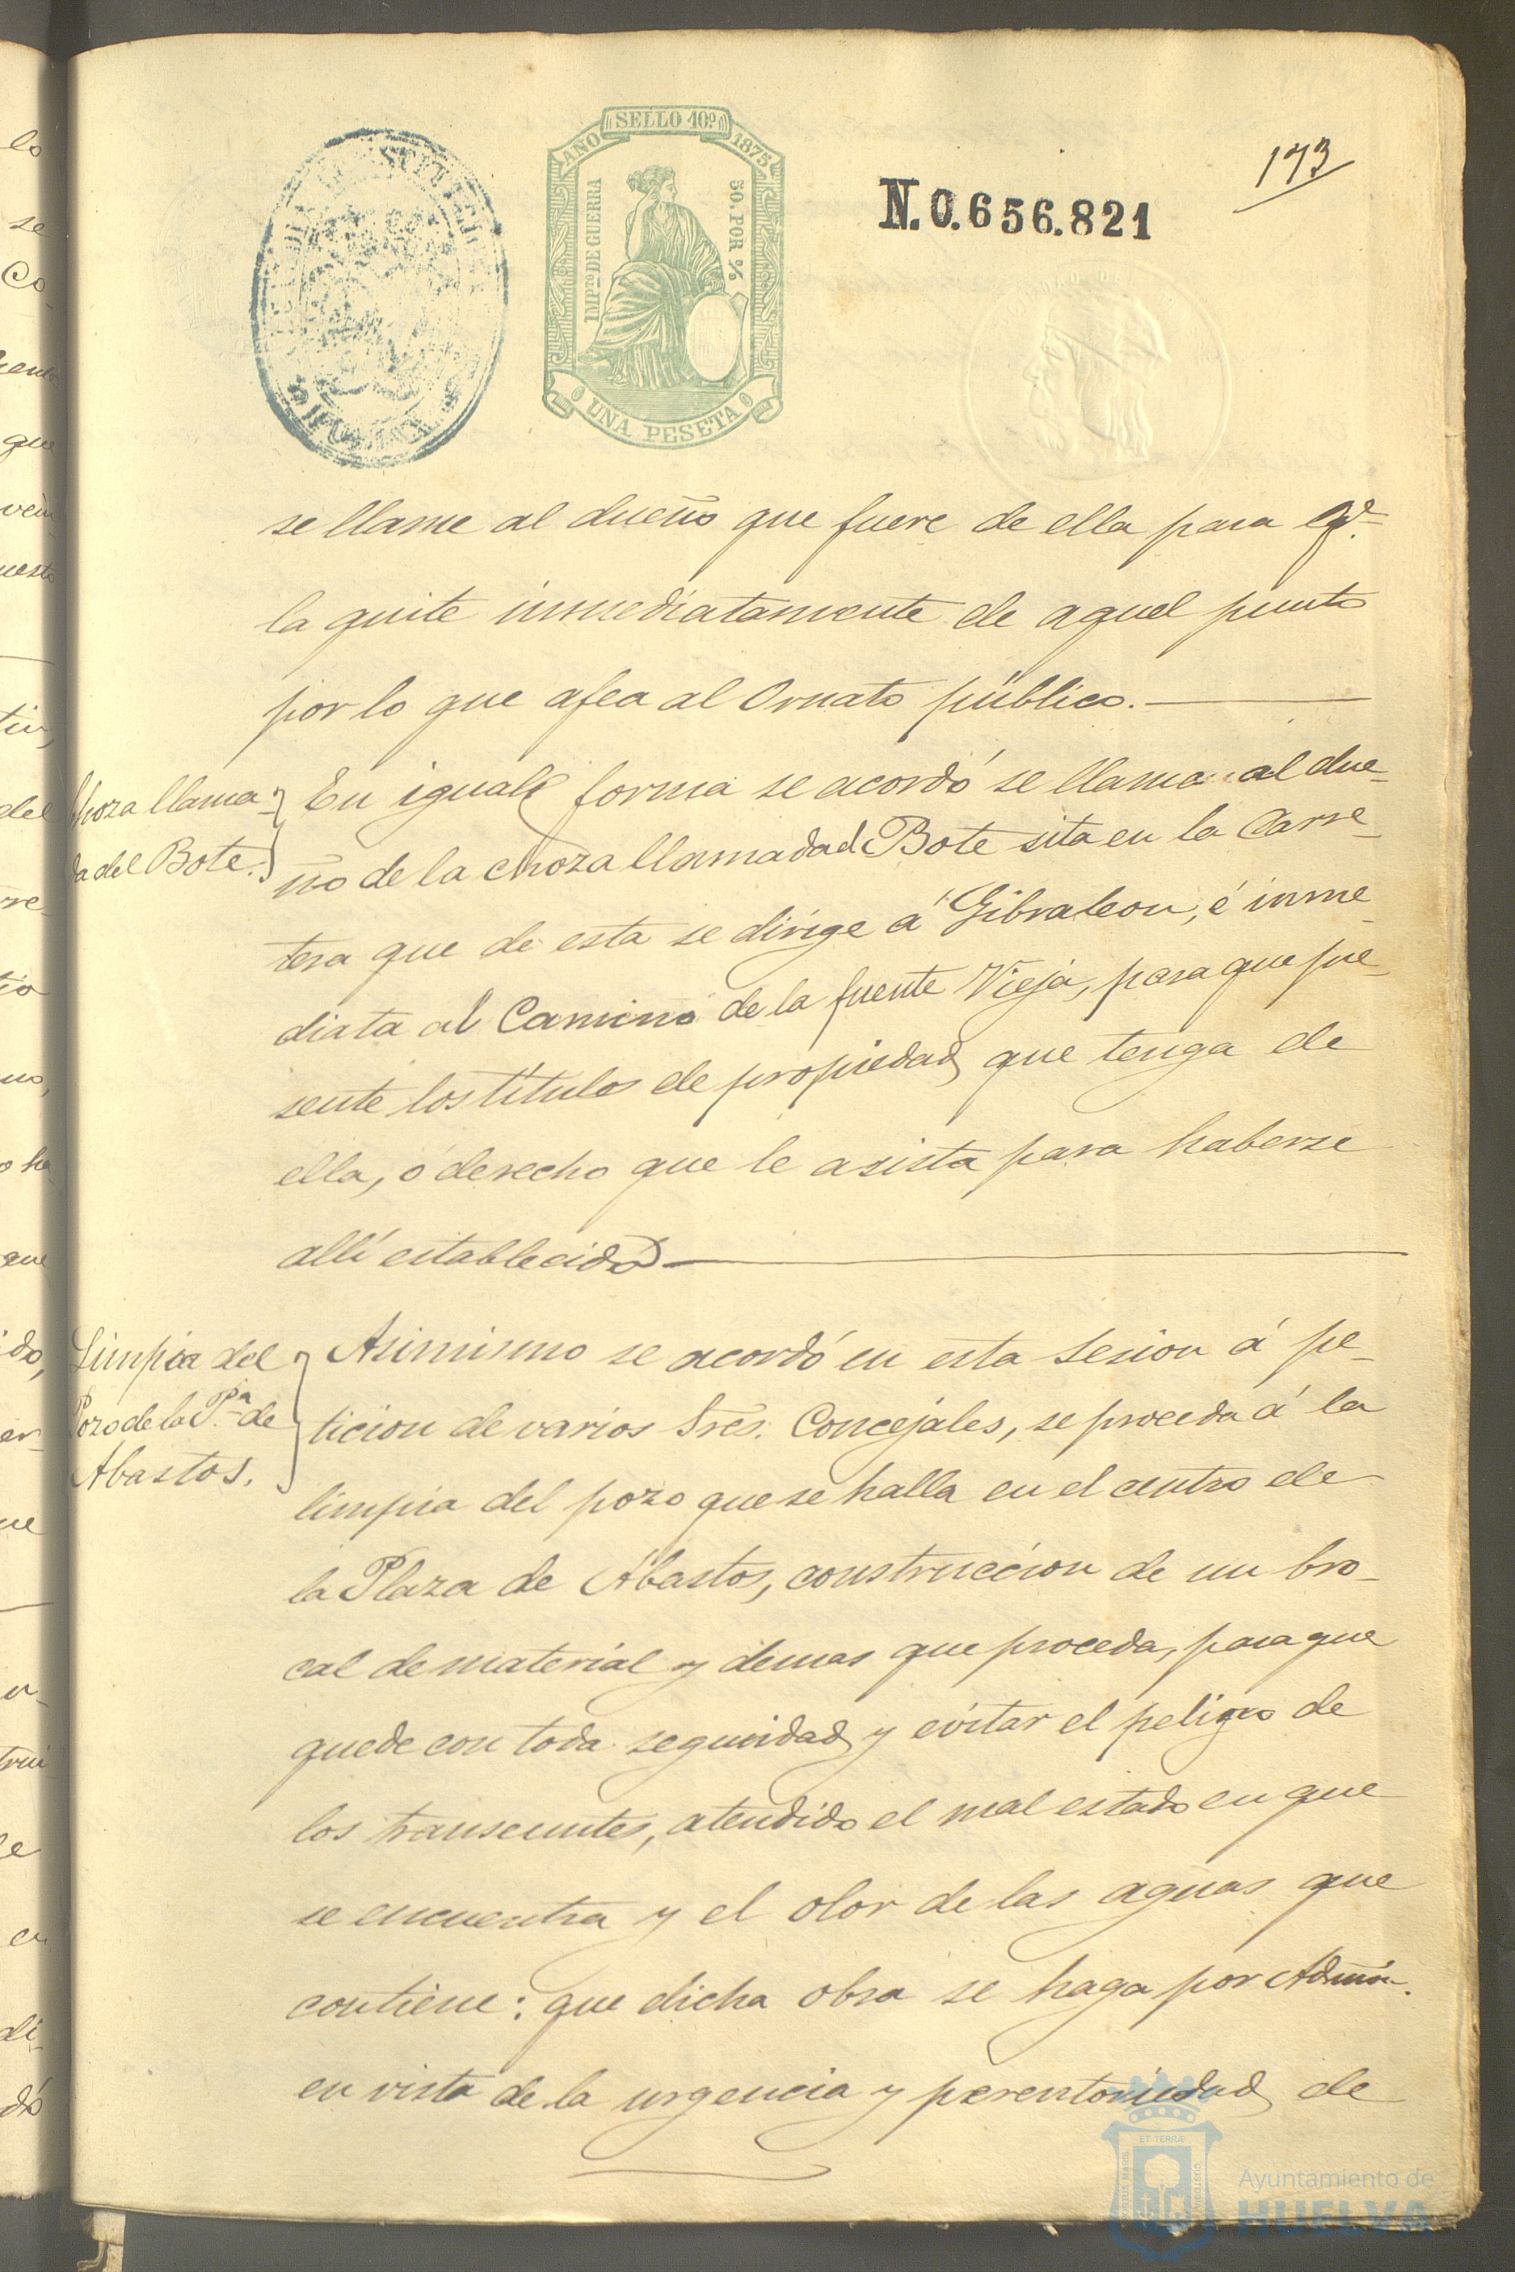 173
AÑO SELLO 10º 1875
IMPTO DE GUERRA
50. POR %
UNA PESETA
N.0.656.821
se llame al dueño que fuere de ella para qe.
la quite inmediatamente de aquel punto
por lo que afea al Ornato público.
Choza llama-
da del Bote.
En igual forma se acordó se llama al due-
ño de la choza llamada del Bote sita en la Carre-
tera que de esta se dirige á Gibraleon, é inme-
diata al Camino de la fuente Vieja, para que pre-
sente los titulos de propiedad que tenga de
ella, o derecho que le asista para haberse
allí establecido
Limpia del
Pozo de la Pª. de
Abastos.
Asimismo se acordó en esta sesion á pe-
ticion de varios Sres. Concejales, se proceda á la
limpia del pozo que se halla en el centro de
la Plaza de Abastos, construccion de un bro-
cal de material y demas que proceda, para que
quede con toda seguridad y evitar el peligro de
los transeuntes, atendido el mal estado en que
se encuentra y el olor de las aguas que
contiene: que dicha obra se haga por Admón.
en vista de la urgencia y perentoriedad de
ET TERRÆ
Ayuntamiento de
HUELVA